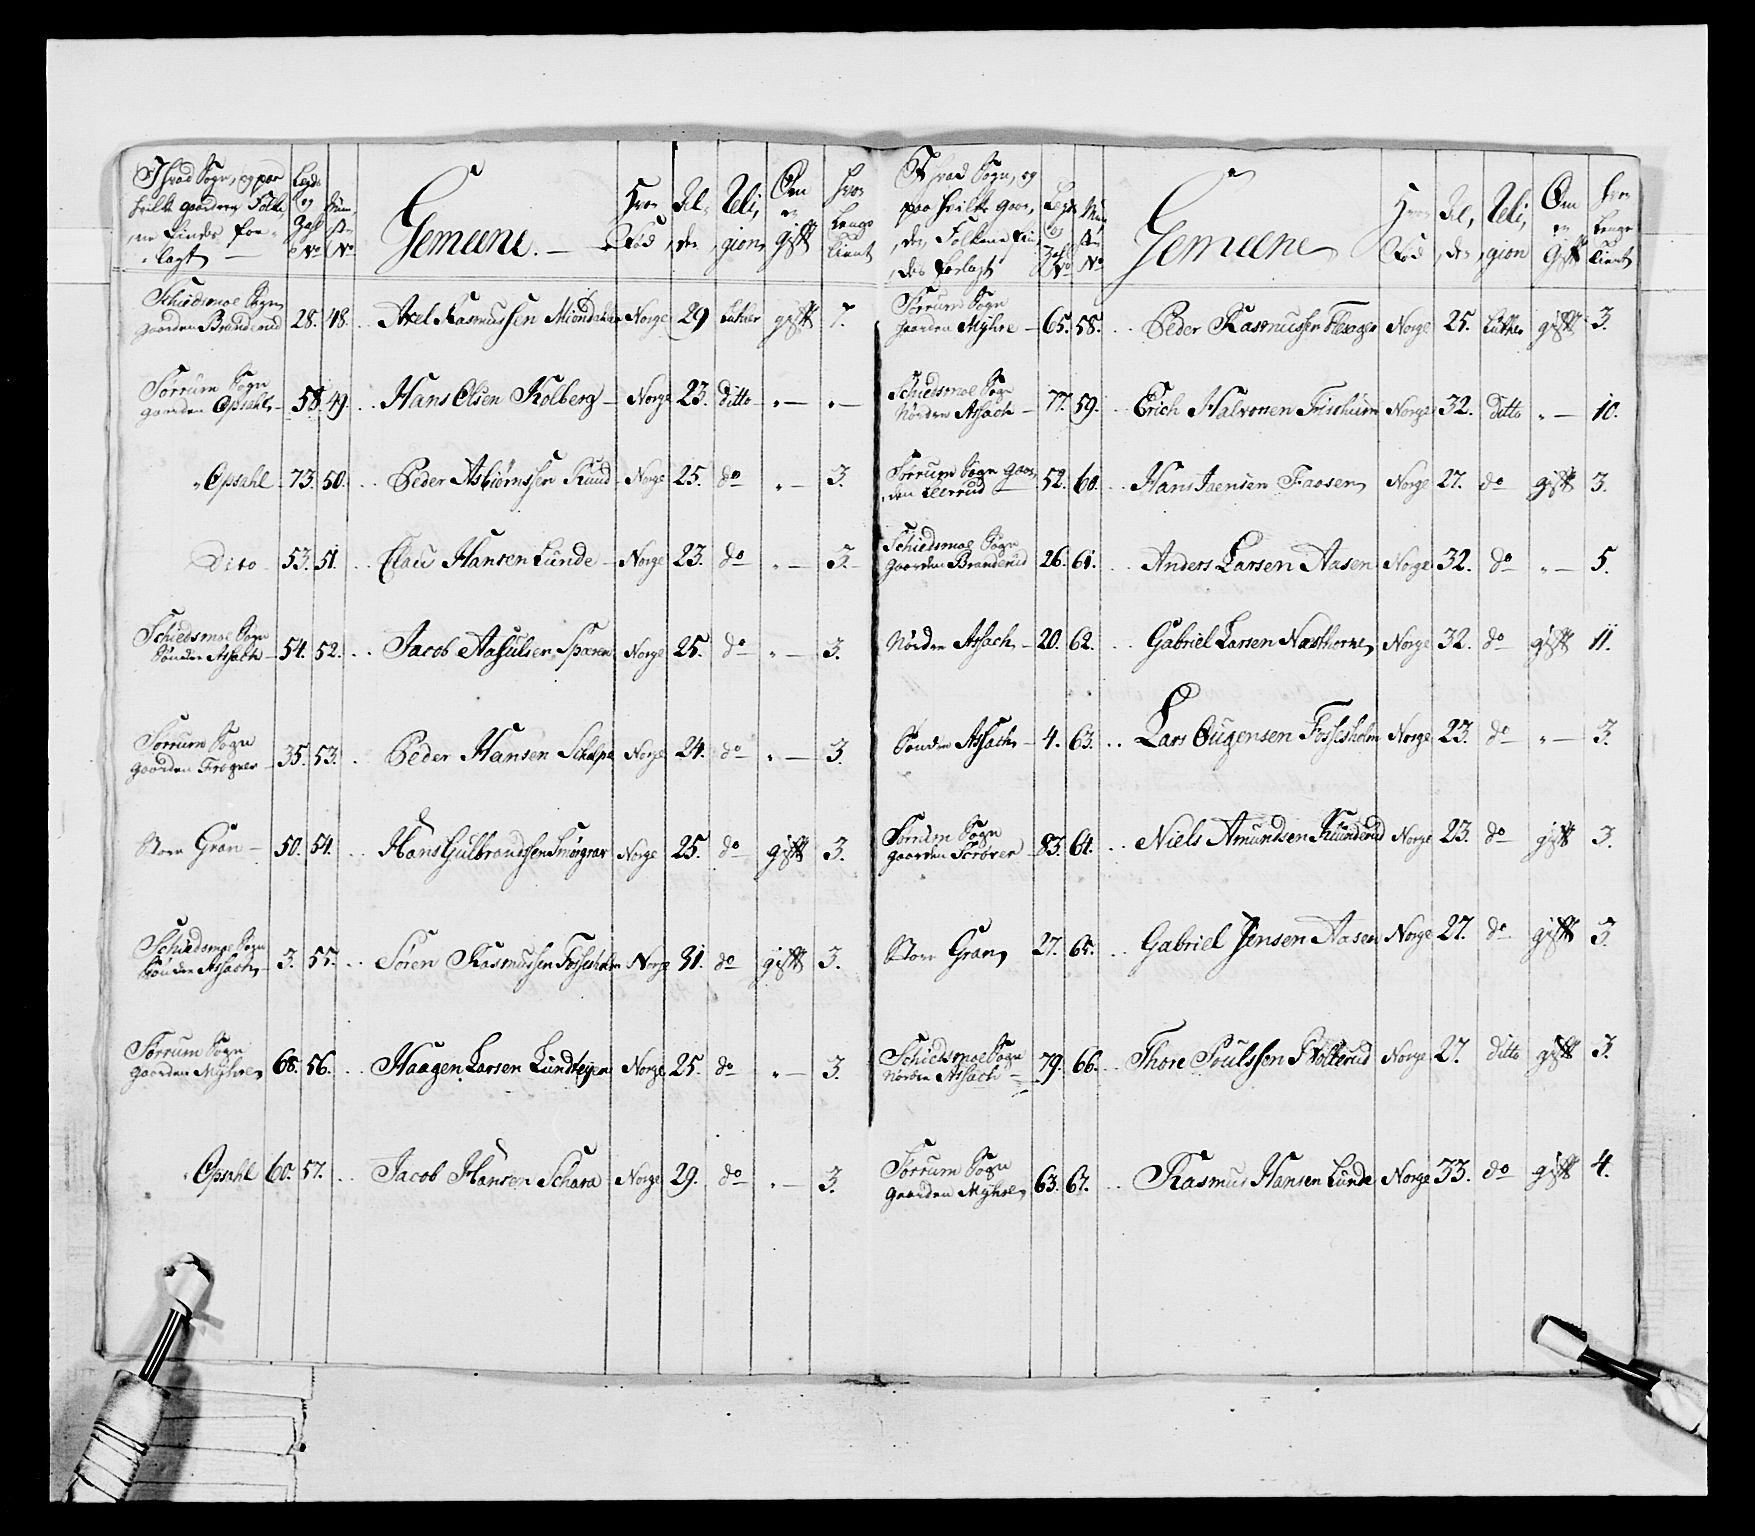 I hvad Sogn, og paa
hvilke gaarder Folke
ne findes for=
lagt
Legds
og
No
No
Gemeene.
Hvor
Fød
Al,
der
Reli,
gion
Om
er
gift
Hvor
Længe
tient
Schiedsmoe Sogn
gaarden Branderud 28. 48. Axel Rasmussen Norge 29 Luther gift 7.
Sørrum Sogn
gaarden Opsahl 58. 49. Hans Olsen Kolberg Norge 23. ditto „ — „ —
Opsahl 73. 50. Peder Asbiørnssen Ruud Norge 25. do „ — 3.
Dito 53. 51. Claus Hansen Lunde Norge 23. do „ — 3.
Schiedsmoe Sogn
Sønder Assach 54. 52. Jacob Aasulsen Norge 25. do „ — 3.
Sørrum Sogn
gaarden Frogner 35. 53. Peder Hansen Norge 24. do „ — 3.
Store Gran 50. 54. Hans Gulbrandssen Smørgrav Norge 25. do gift 3.
Schiedsmoe Sogn
Sønder Assach 3. 55. Søren Rasmussen Fossesholm Norge 31. do gift 3.
Sørrum Sogn
gaarden Myhre 68. 56. Haagen Larsen Lundteigen Norge 25. do „ — 3.
Opsahl 60. 57. Jacob Hansen Schara Norge 29. do „ — 3.
I hvad Sogn, og
paa hvilke gaar,
der Folkene fin,
des forlagt
Legds
og
No
No
Gemeene
Hvor
Fød
Al,
der
Reli,
gion
Om
er
Gift
Hvor
Længe
tient
Sørrum Sogn
gaarden Myhre 65. 58. Peder Rasmussen Norge 25. Luther gift 3.
Schiedsmoe Sogn
Nordre Assach 77. 59. Erich Halvorsen Norge 32. ditto „ — 10.
Sørrum Sogn gaar,
den Leerrud 52. 60. Hans Jensen Faosen Norge 27. do gift 3.
Schiedsmoe Sogn
gaarden Branderud 26. 61. Anders Larsen Aasen Norge 32. do „ — 5.
Nordre Assach 20. 62. Gabriel Larsen Norge 32. do gift 11.
Sønder Assach 4. 63. Lars Fossesholm Norge 23. do „ — 3.
Sørrum Sogn
gaarden Sørover 83. 64. Niels Amundsen Norge 23. do gift 3.
Store Gran 27. 65. Gabriel Jensen Aasen Norge 27. do gift 3.
Schiedsmoe Sogn
Nordre Assach 79. 66. Thore Poulssen Norge 27. ditto gift 3.
Sørrum Sogn
gaarden Myhre 63. 67. Rasmus Hansen Lunde Norge 33. do gift 4.